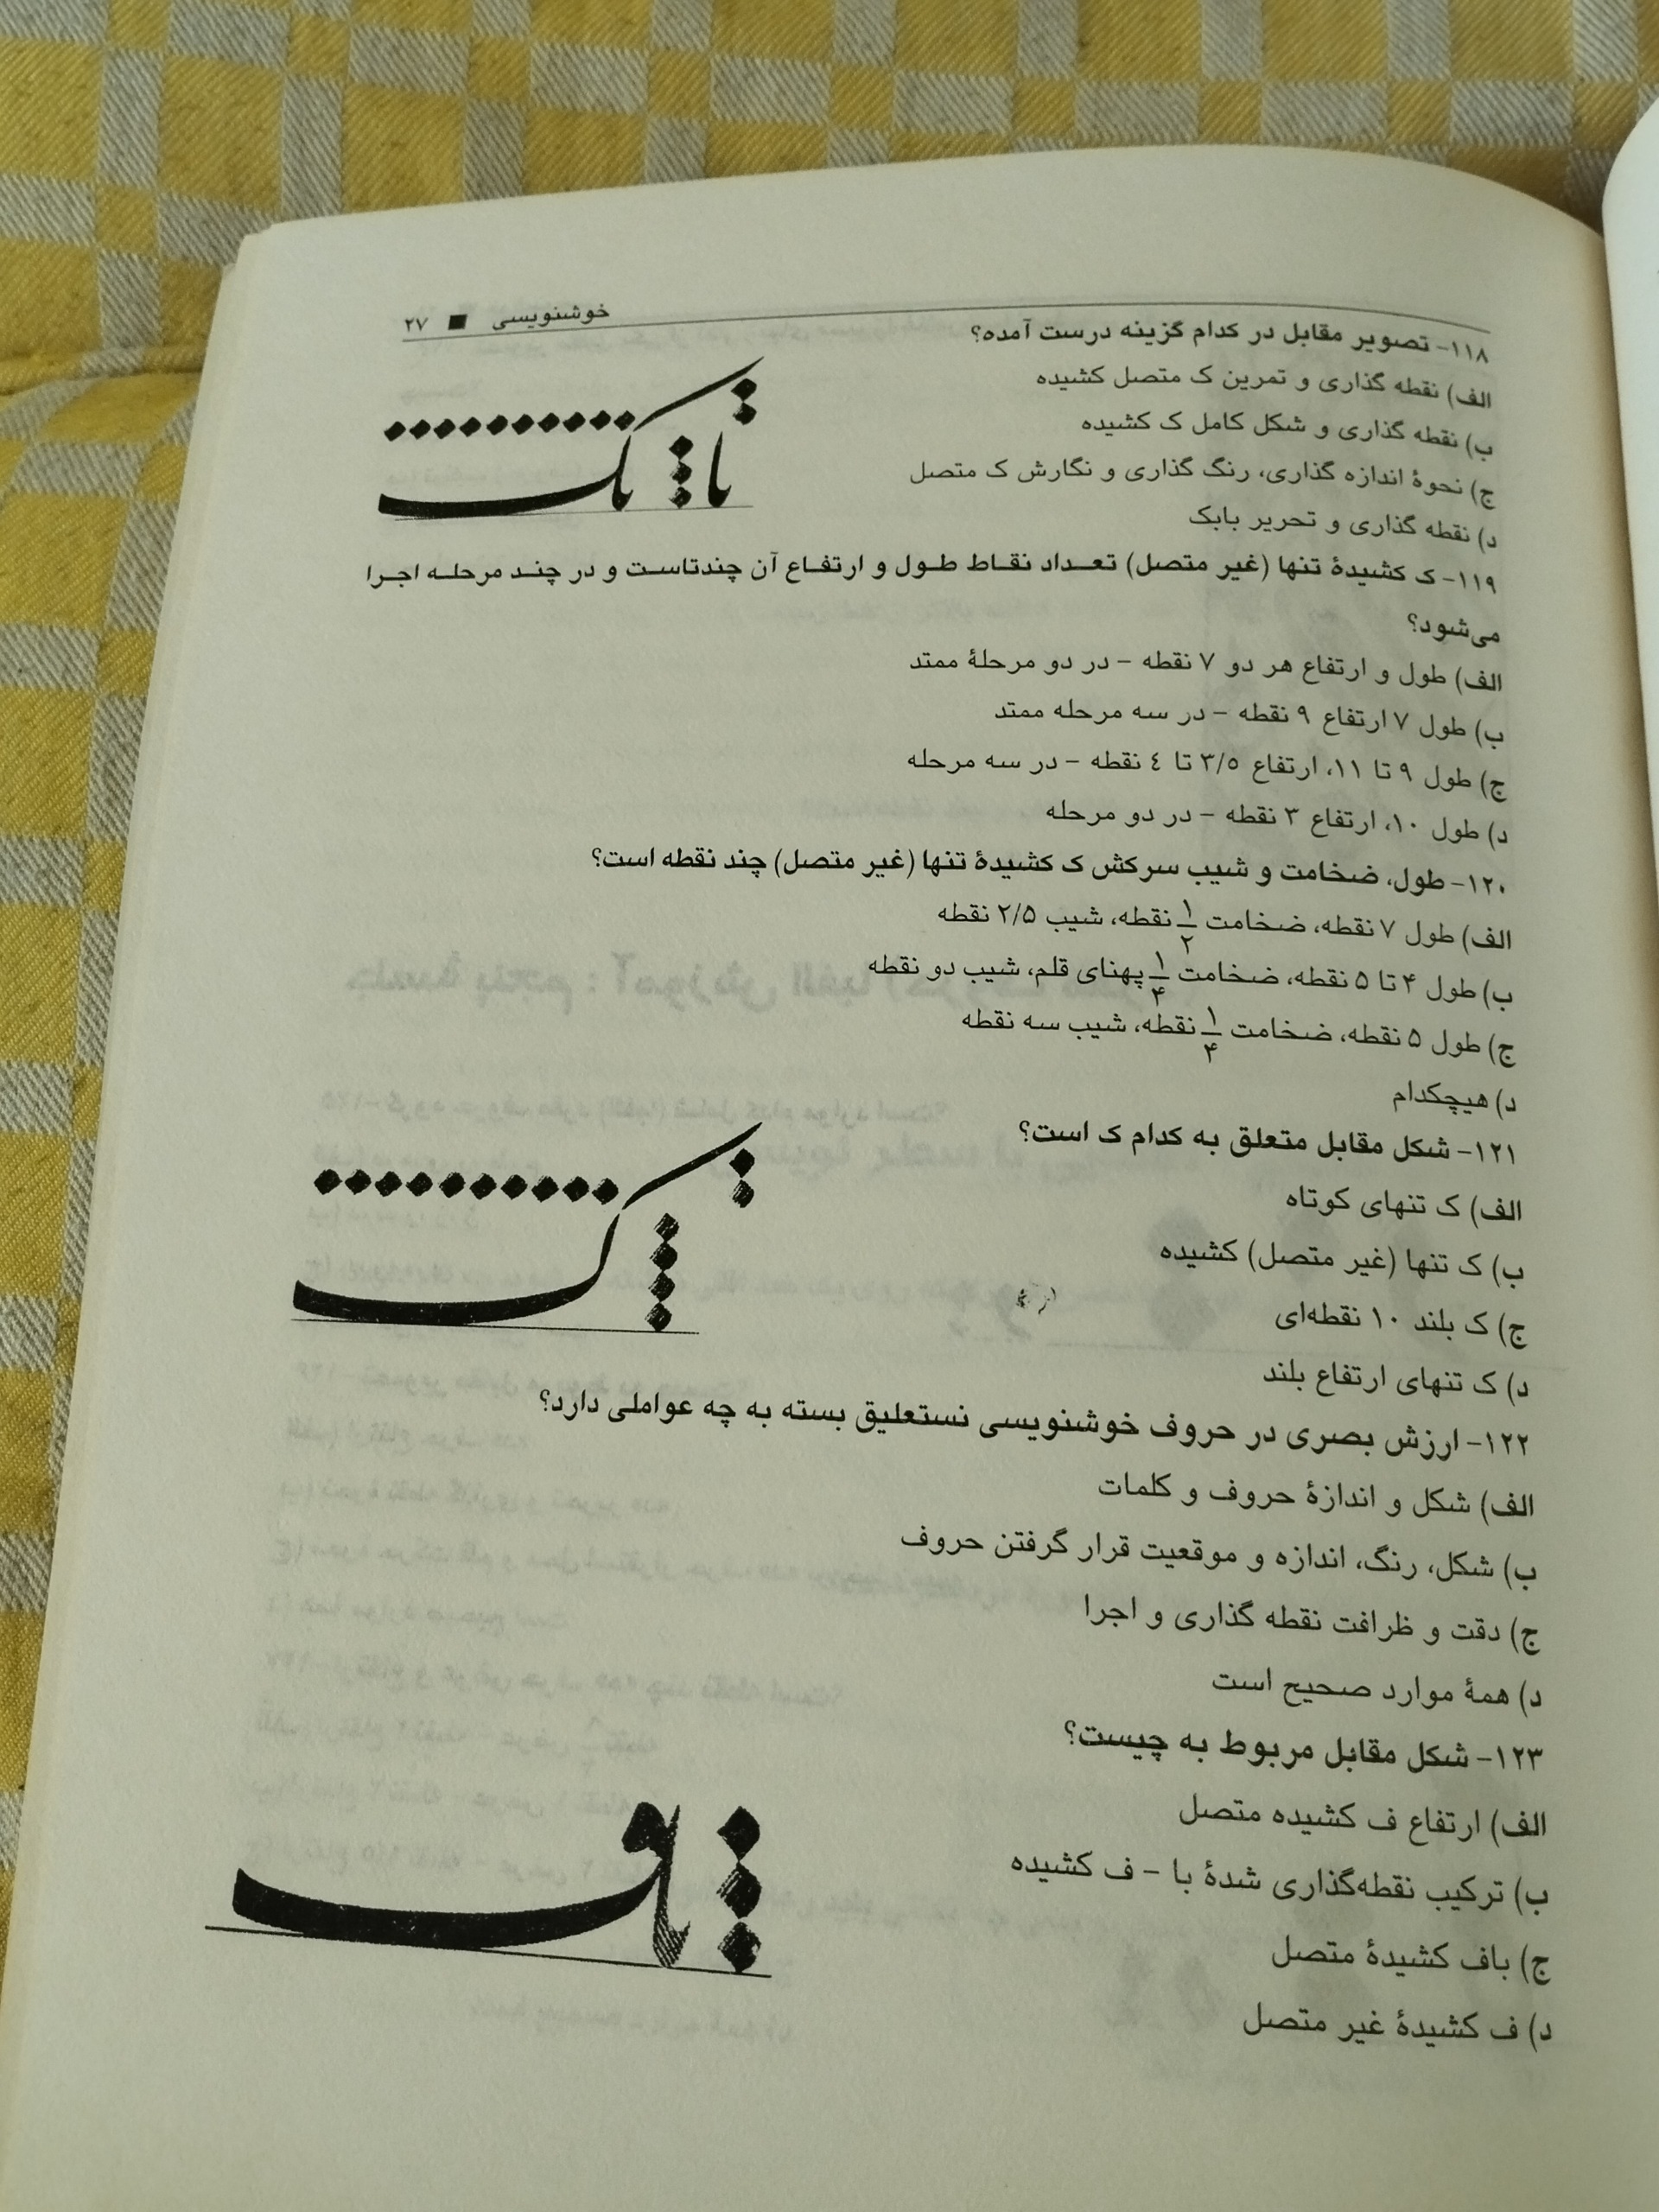 خوشنویسی ■ ۲۷
۱۱۸- تصویر مقابل در کدام گزینه درست آمده؟
الف) نقطه گذاری و تمرین ک متصل کشیده
ب) نقطه گذاری و شکل کامل ک کشیده
ج) نحوهٔ اندازه گذاری، رنگ گذاری و نگارش ک متصل
د) نقطه گذاری و تحریر بابک
۱۱۹- ک کشیدهٔ تنها (غیر متصل) تعداد نقاط طول و ارتفاع آن چندتاست و در چند مرحله اجرا
می‌شود؟
الف) طول و ارتفاع هر دو ۷ نقطه - در دو مرحلهٔ ممتد
ب) طول ۷ ارتفاع ۹ نقطه - در سه مرحله ممتد
ج) طول ۹ تا ۱۱، ارتفاع ۳/۵ تا ٤ نقطه - در سه مرحله
د) طول ۱۰، ارتفاع ۳ نقطه - در دو مرحله
۱۲۰- طول، ضخامت و شیب سرکش ک کشیدهٔ تنها (غیر متصل) چند نقطه است؟
الف) طول ۷ نقطه، ضخامت ۱/۲ نقطه، شیب ۲/۵ نقطه
ب) طول ۴ تا ۵ نقطه، ضخامت ۱/۴ پهنای قلم، شیب دو نقطه
ج) طول ۵ نقطه، ضخامت ۱/۴ نقطه، شیب سه نقطه
د) هیچکدام
۱۲۱- شکل مقابل متعلق به کدام ک است؟
الف) ک تنهای کوتاه
ب) ک تنها (غیر متصل) کشیده
ج) ک بلند ۱۰ نقطه‌ای
د) ک تنهای ارتفاع بلند
ک
۱۲۲- ارزش بصری در حروف خوشنویسی نستعلیق بسته به چه عواملی دارد؟
الف) شکل و اندازهٔ حروف و کلمات
ب) شکل، رنگ، اندازه و موقعیت قرار گرفتن حروف
ج) دقت و ظرافت نقطه گذاری و اجرا
د) همهٔ موارد صحیح است
۱۲۳- شکل مقابل مربوط به چیست؟
الف) ارتفاع ف کشیده متصل
ب) ترکیب نقطه‌گذاری شدهٔ با - ف کشیده
ج) باف کشیدهٔ متصل
د) ف کشیدهٔ غیر متصل